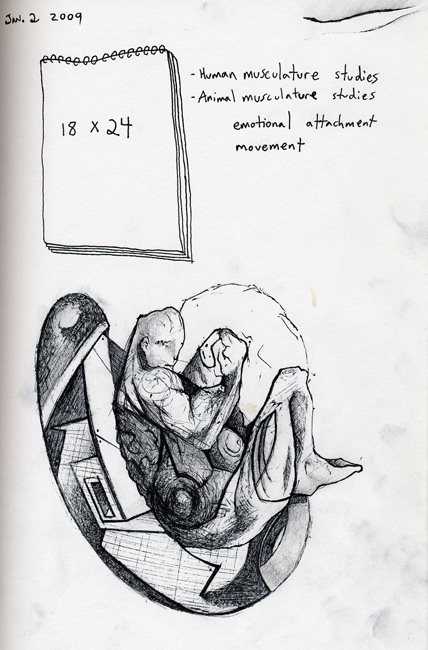 Jan. 2 2009
- Human musculature studies
- Animal musculature studies
emotional attachment
movement
18 x 24